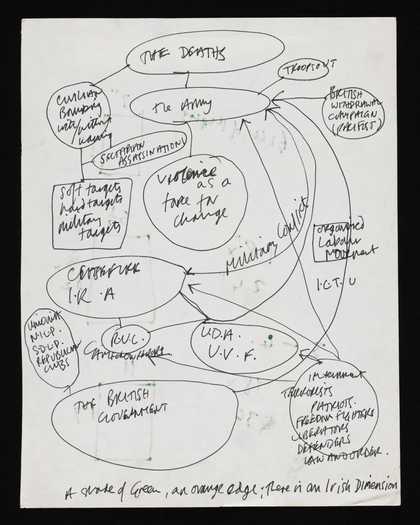 THE DEATHS
TROOPS OUT
The Army
CIVILIAN
Bombing
with/without
warning
BRITISH
WITHDRAWAL
CAMPAIGN
(PACIFIST)
SECTARIAN ASSASSINATIONS
Soft targets
hard targets
military
targets
Violence
as a
force for
change
Military Conflict
organised
Labour
Movement
CEASEFIRE
I.R.A
I.C.T.U
R.U.C.
U.D.A.
U.V.F.
UNIONIST
N.I.L.P.
S.D.L.P.
REPUBLICAN
CLUBS
THE BRITISH
GOVERNMENT
Internment
TERRORISTS
PATRIOTS.
FREEDOM FIGHTERS
LIBERATORS
DEFENDERS
LAW AND ORDER.
A shade of Green, an orange edge; there is an Irish Dimension